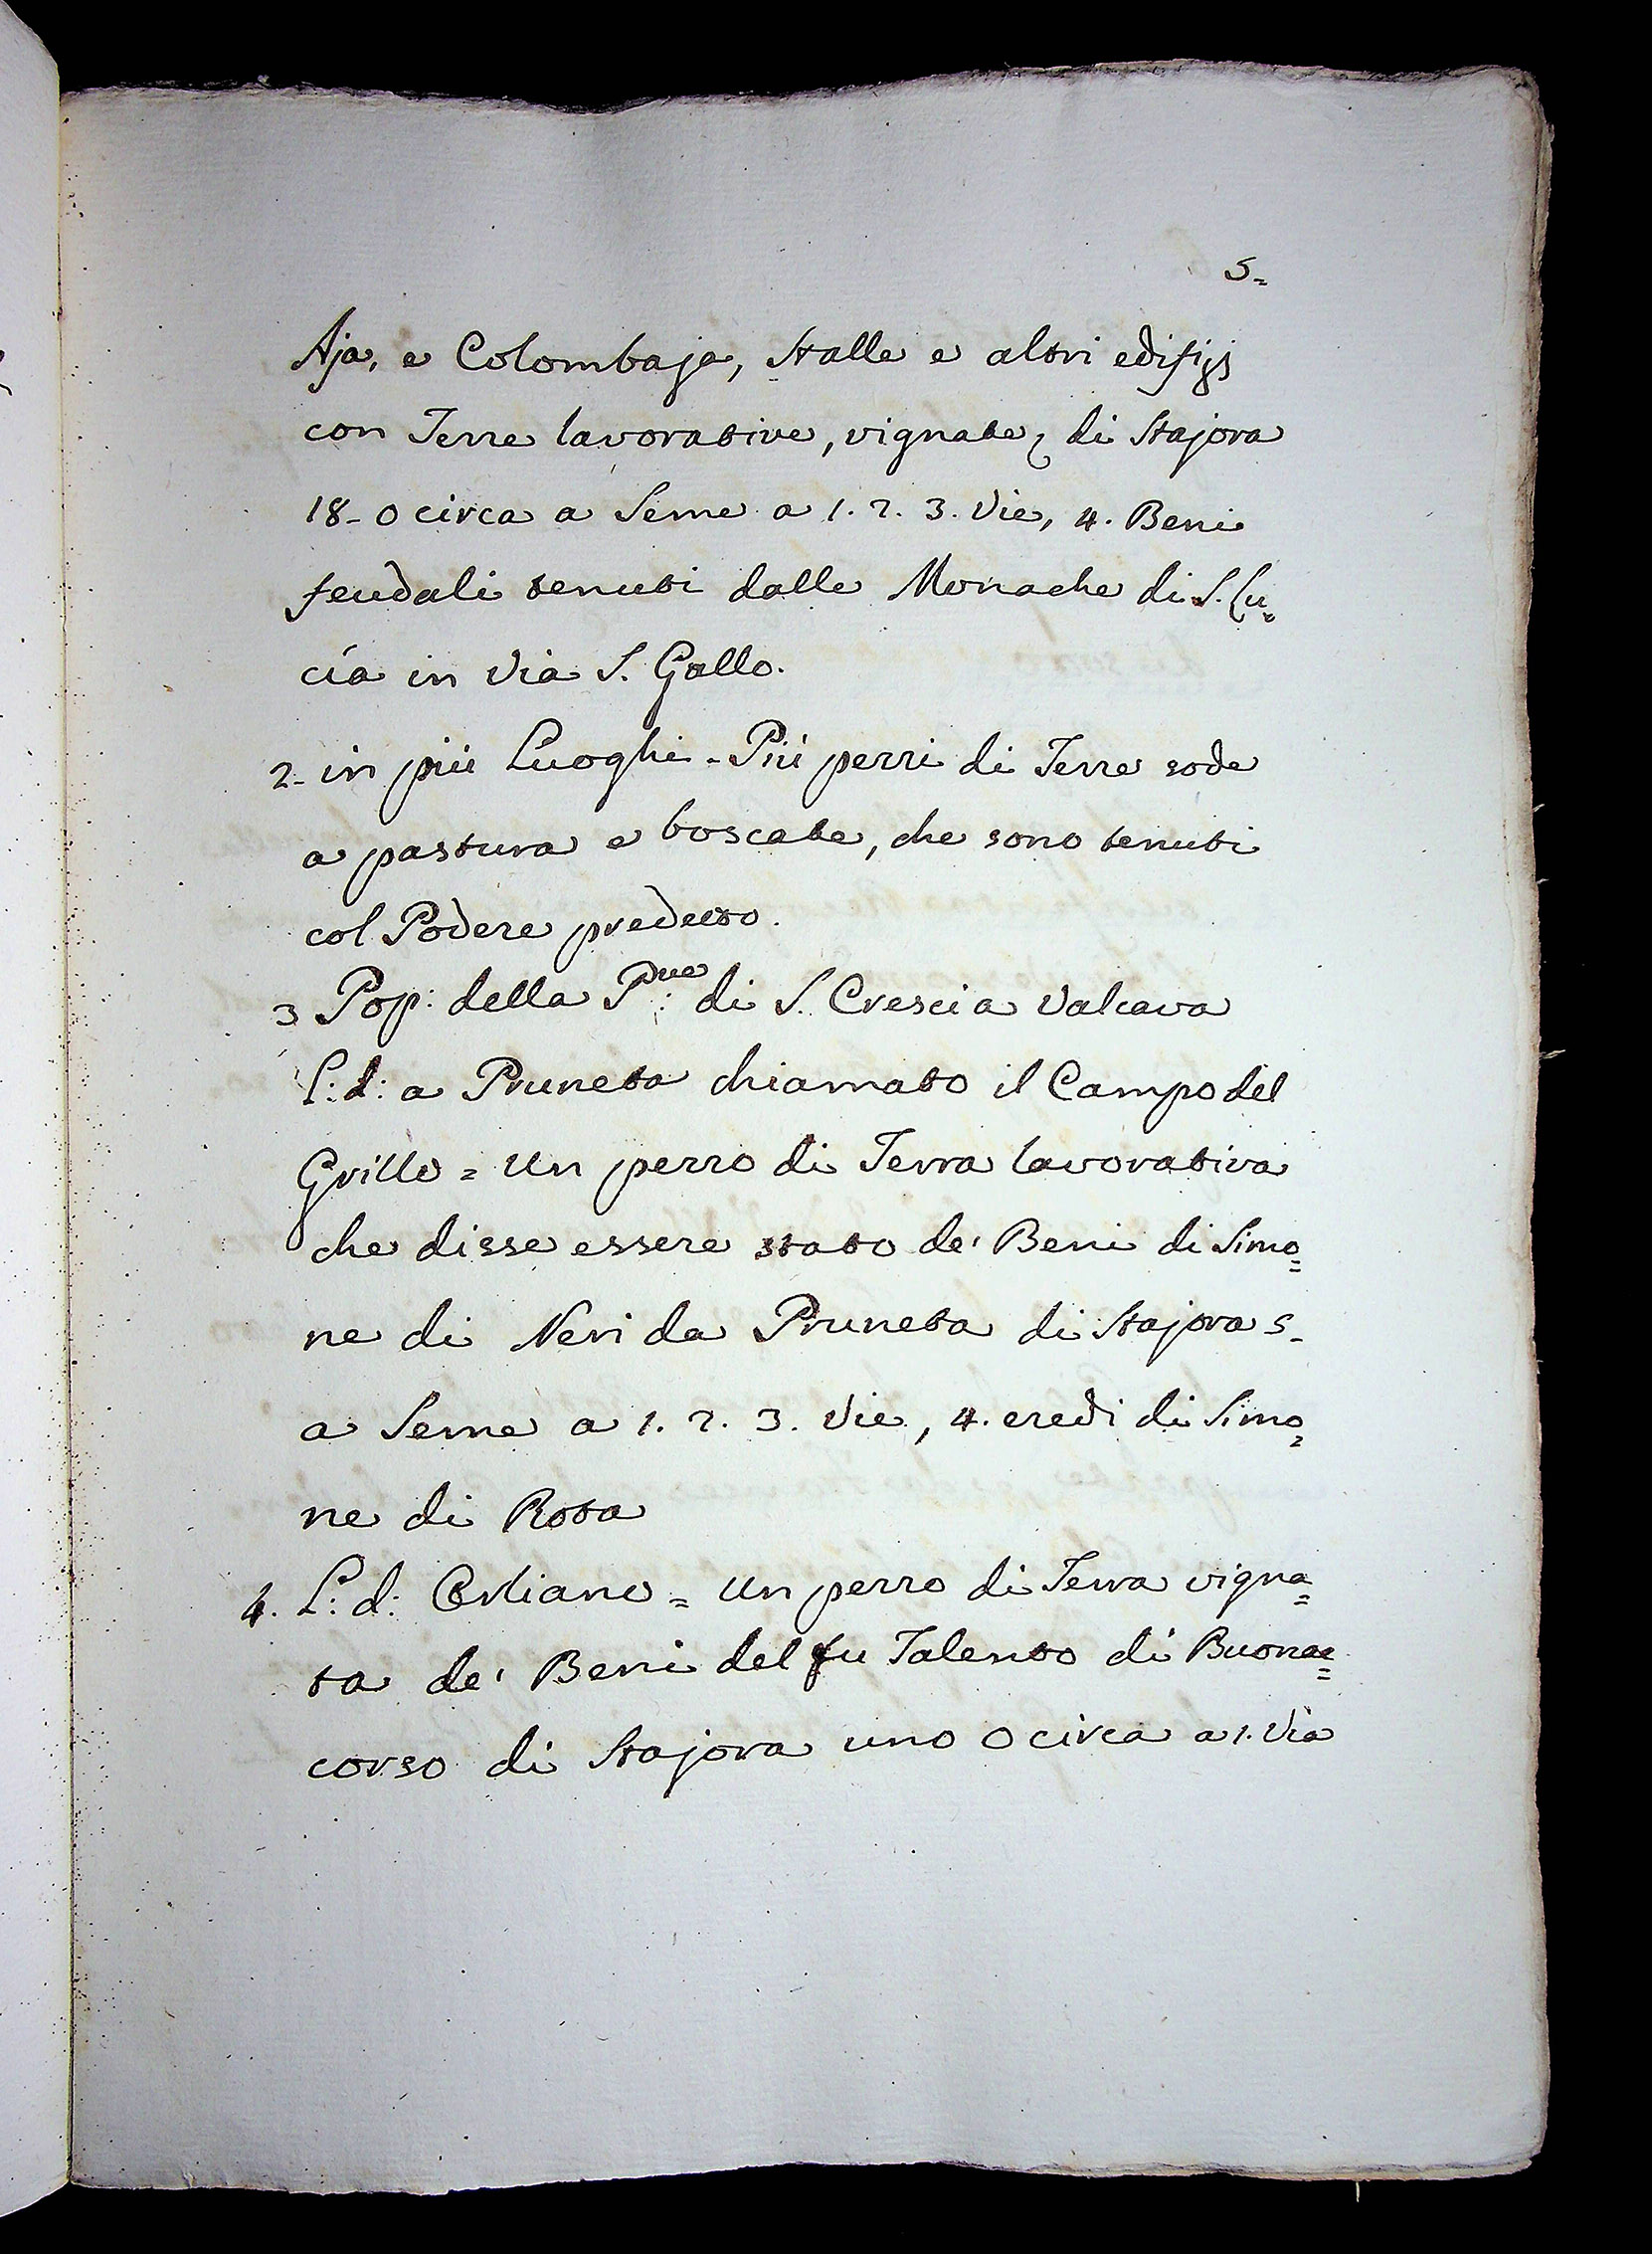 5=
Aja, e Colombaja, Stalle e altri edifizj
con Terre lavorative, vignate, di Stajora
18- o circa a Seme a 1. 2. 3. Vie, 4. Beni
feudali tenuti dalle Monache di S. Lu=
cía in Via S. Gallo.
2- in più Luoghi - Più pezzi di Terre sode
a pastura e boscate, che sono tenuti
col Podere predetto.
3 Pop: della P:ve di S. Cresci a Valcava
L: d: a Pruneta chiamato il Campo del
Grillo = Un pezzo di Terra lavorativa
che disse essere stato de' Beni di Simo=
ne di Neri da Pruneta di Stajora 5-
a Seme a 1. 2. 3. Vie, 4. eredi di Simo=
ne di Rota
4. L: d: Orliano = Un pezzo di Terra vigna=
ta de' Beni del fu Talento di Buonac=
corso di Stajora uno o circa a 1. Via